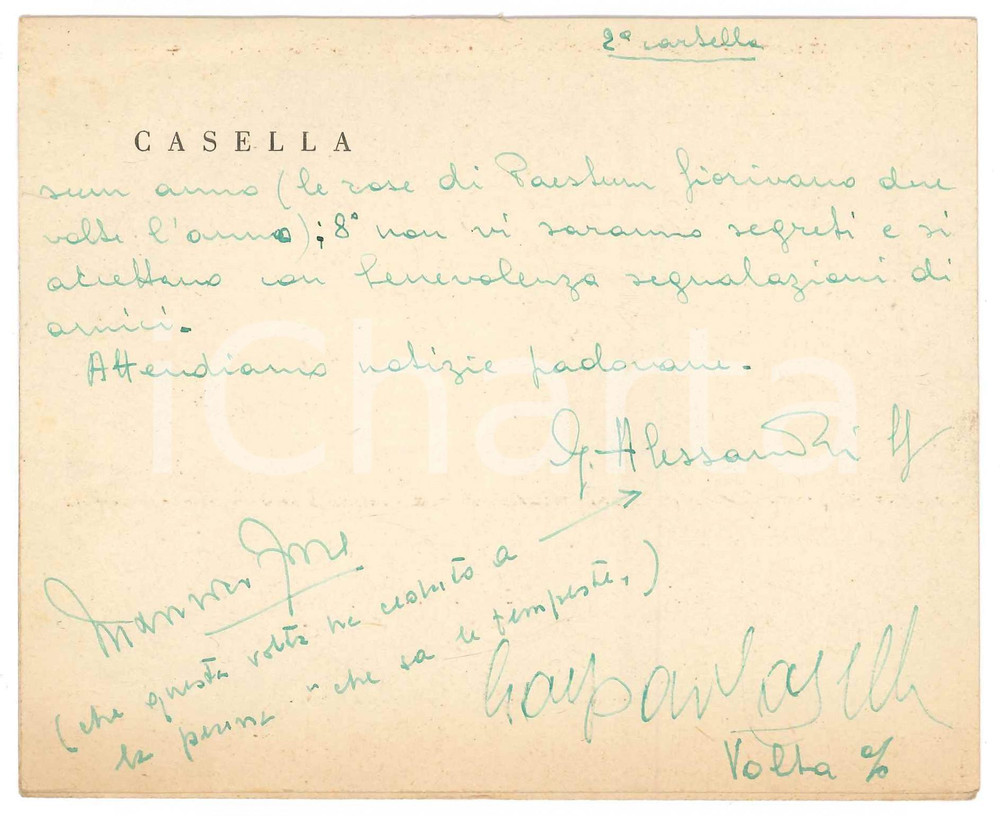 2ª cartella
CASELLA
sum anno (le rose di Paestum fiorivano due
volte l'anno); 8° non vi saranno segreti e si
accettano con benevolenza segnalazioni di
amici.
Attendiamo notizie padovane.
G. Alessandri
(che questa volta ha ceduto a
la penna "che sa le tempeste")
Gaspar Casella
Volta %
iCharta